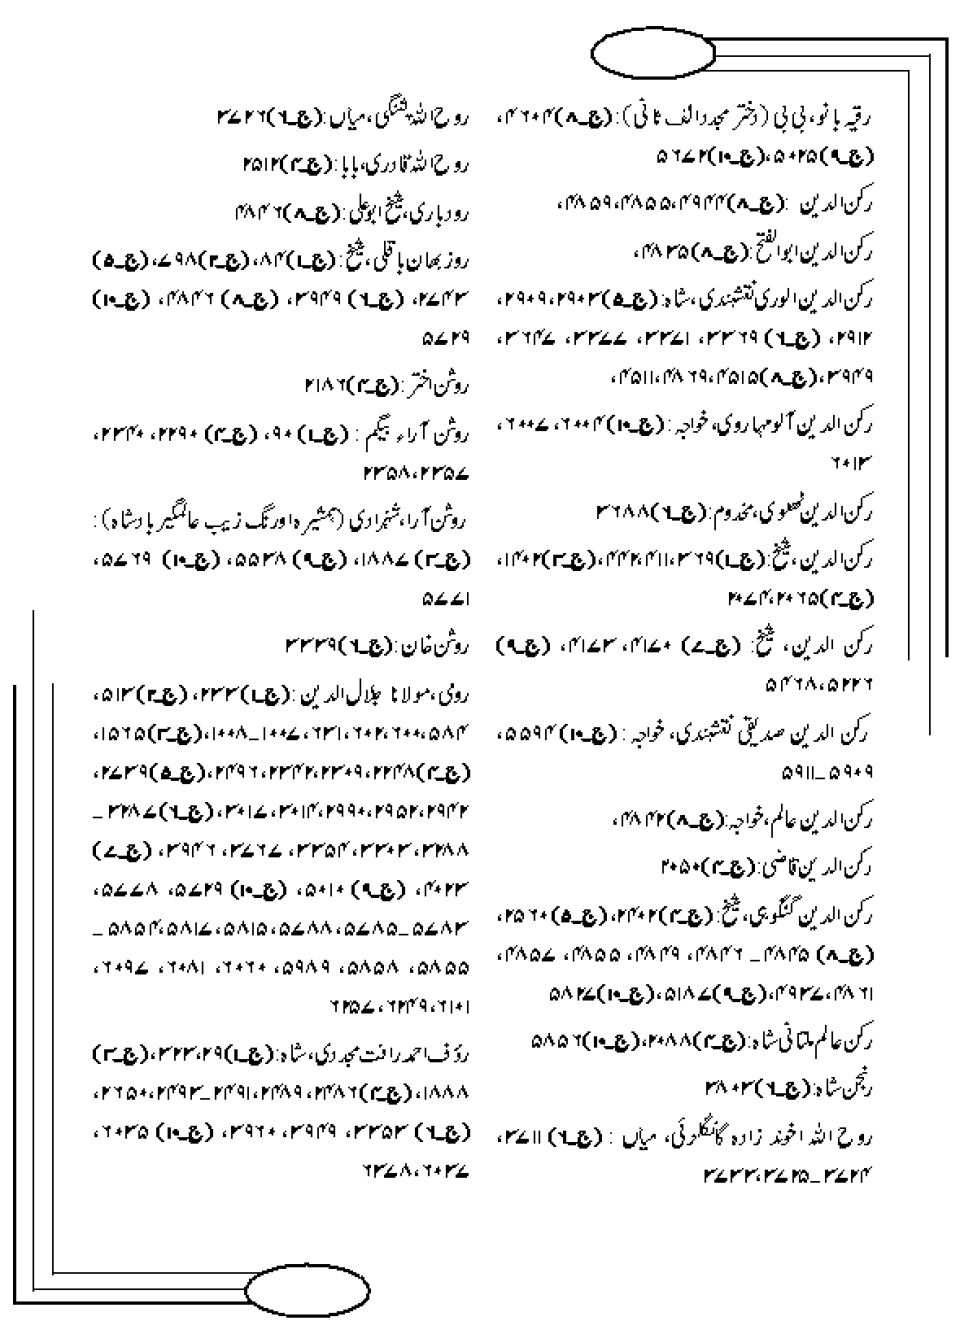 رقیہ بانو، بی بی (دختر مجدد الف ثانی): (ج۔۸)۴۶۰۴،
(ج۔۹)۵۰۲۵، (ج۔۱۰)۵۶۷۲
رکن الدین : (ج۔۸)۴۹۴۴، ۴۸۵۵، ۴۸۵۹،
رکن الدین ابوالفتح: (ج۔۸)۴۸۳۵،
رکن الدین الوری نقشبندی، شاہ: (ج۔۵)۲۹۰۳، ۲۹۰۹،
۲۹۱۲، (ج۔۶) ۳۳۶۹، ۳۳۷۱، ۳۳۷۷، ۳۶۴۷،
۳۹۴۹، (ج۔۸)۴۵۱۵، ۴۸۶۹، ۴۵۱۱،
رکن الدین آلومہاروی، خواجہ: (ج۔۱۰)۶۰۰۴، ۶۰۰۷،
۶۰۱۳
رکن الدین مخدوم: (ج۔۶)۳۶۸۸
رکن الدین، شیخ: (ج۔۱)۳۶۹، ۴۱۱، ۴۴۲، (ج۔۳)۱۴۰۲،
(ج۔۴)۲۰۶۵، ۲۰۷۴
رکن الدین، شیخ: (ج۔۷) ۴۱۷۰، ۴۱۷۳، (ج۔۹)
۵۲۲۶، ۵۴۶۸
رکن الدین صدیقی نقشبندی، خواجہ : (ج۔۱۰) ۵۵۹۴،
۵۹۰۹۔۵۹۱۱
رکن الدین عالم، خواجہ: (ج۔۸)۴۸۴۲،
رکن الدین قاضی: (ج۔۴)۲۰۵۰
رکن الدین گنگوہی، شیخ: (ج۔۴)۲۴۰۲، (ج۔۵)۲۵۶۰،
(ج۔۸) ۴۸۴۵۔ ۴۸۴۶، ۴۸۴۹، ۴۸۵۵، ۴۸۵۷،
۴۸۶۱، ۴۹۳۷، (ج۔۹)۵۱۸۷، (ج۔۱۰)۵۸۲۷
رکن عالم ملتانی شاہ: (ج۔۴)۲۰۸۸، (ج۔۱۰)۵۸۵۶
رنجن شاہ: (ج۔۶)۳۸۰۳
روح اللہ اخوند زادہ میاں : (ج۔۶) ۳۷۱۱،
۳۷۲۴۔۳۷۲۵، ۳۷۳۳
روح اللہ میاں: (ج۔۶)۳۷۲۶
روح اللہ قادری، بابا: (ج۔۴)۲۵۱۲
رودباری، شیخ ابوعلی: (ج۔۸)۴۸۴۶
روزبھان باقلی، شیخ: (ج۔۱)۸۴، (ج۔۲)۷۹۸، (ج۔۵)
۲۷۴۳، (ج۔۶) ۳۹۴۹، (ج۔۸) ۴۸۴۶، (ج۔۱۰)
۵۷۲۹
روشن اختر: (ج۔۴)۲۱۸۶
روشن آراء بیگم : (ج۔۱)۹۰، (ج۔۴) ۲۲۹۰، ۲۳۴۰،
۲۳۵۷، ۲۳۵۸
روشن آرا، شہزادی (ہمشیرہ اورنگ زیب عالمگیر بادشاہ):
(ج۔۳) ۱۸۸۷، (ج۔۹) ۵۵۳۸، (ج۔۱۰) ۵۷۶۹،
۵۷۷۱
روشن خان: (ج۔۶)۳۳۳۹
رومی، مولانا جلال الدین: (ج۔۱)۲۳۳، (ج۔۲)۵۱۳،
۵۸۴، ۶۰۰، ۶۰۲، ۶۳۱، ۱۰۰۷۔۱۰۰۸، (ج۔۳)۱۵۶۵،
(ج۔۴)۲۲۴۸، ۲۳۰۹، ۲۳۴۲، ۲۴۹۶، (ج۔۵)۲۷۳۹،
۲۹۴۲، ۲۹۵۲، ۲۹۹۰، ۳۰۱۴، ۳۰۱۷، (ج۔۶)۳۲۸۷۔
۳۲۸۸، ۳۳۰۳، ۳۳۵۴، ۳۷۶۷، ۳۹۴۶، (ج۔۷)
۴۰۲۳، (ج۔۹) ۵۰۱۰، (ج۔۱۰) ۵۷۲۹، ۵۷۷۸،
۵۷۸۳۔۵۷۸۵، ۵۷۸۸، ۵۸۱۵، ۵۸۱۷، ۵۸۵۴۔
۵۸۵۵، ۵۸۵۸، ۵۹۸۹، ۶۰۲۰، ۶۰۸۱، ۶۰۹۷،
۶۱۰۱، ۶۲۴۹، ۶۲۵۷
رؤف احمد رافت مجددی، شاہ: (ج۔۱)۲۹، ۳۲۳، (ج۔۳)
۱۸۸۸، (ج۔۴)۲۴۸۶، ۲۴۸۹، ۲۴۹۱۔۲۴۹۳، ۲۶۵۰،
(ج۔۶) ۳۳۵۳، ۳۹۴۹، ۳۹۶۰، (ج۔۱۰) ۶۰۳۵،
۶۰۳۷، ۶۳۷۸